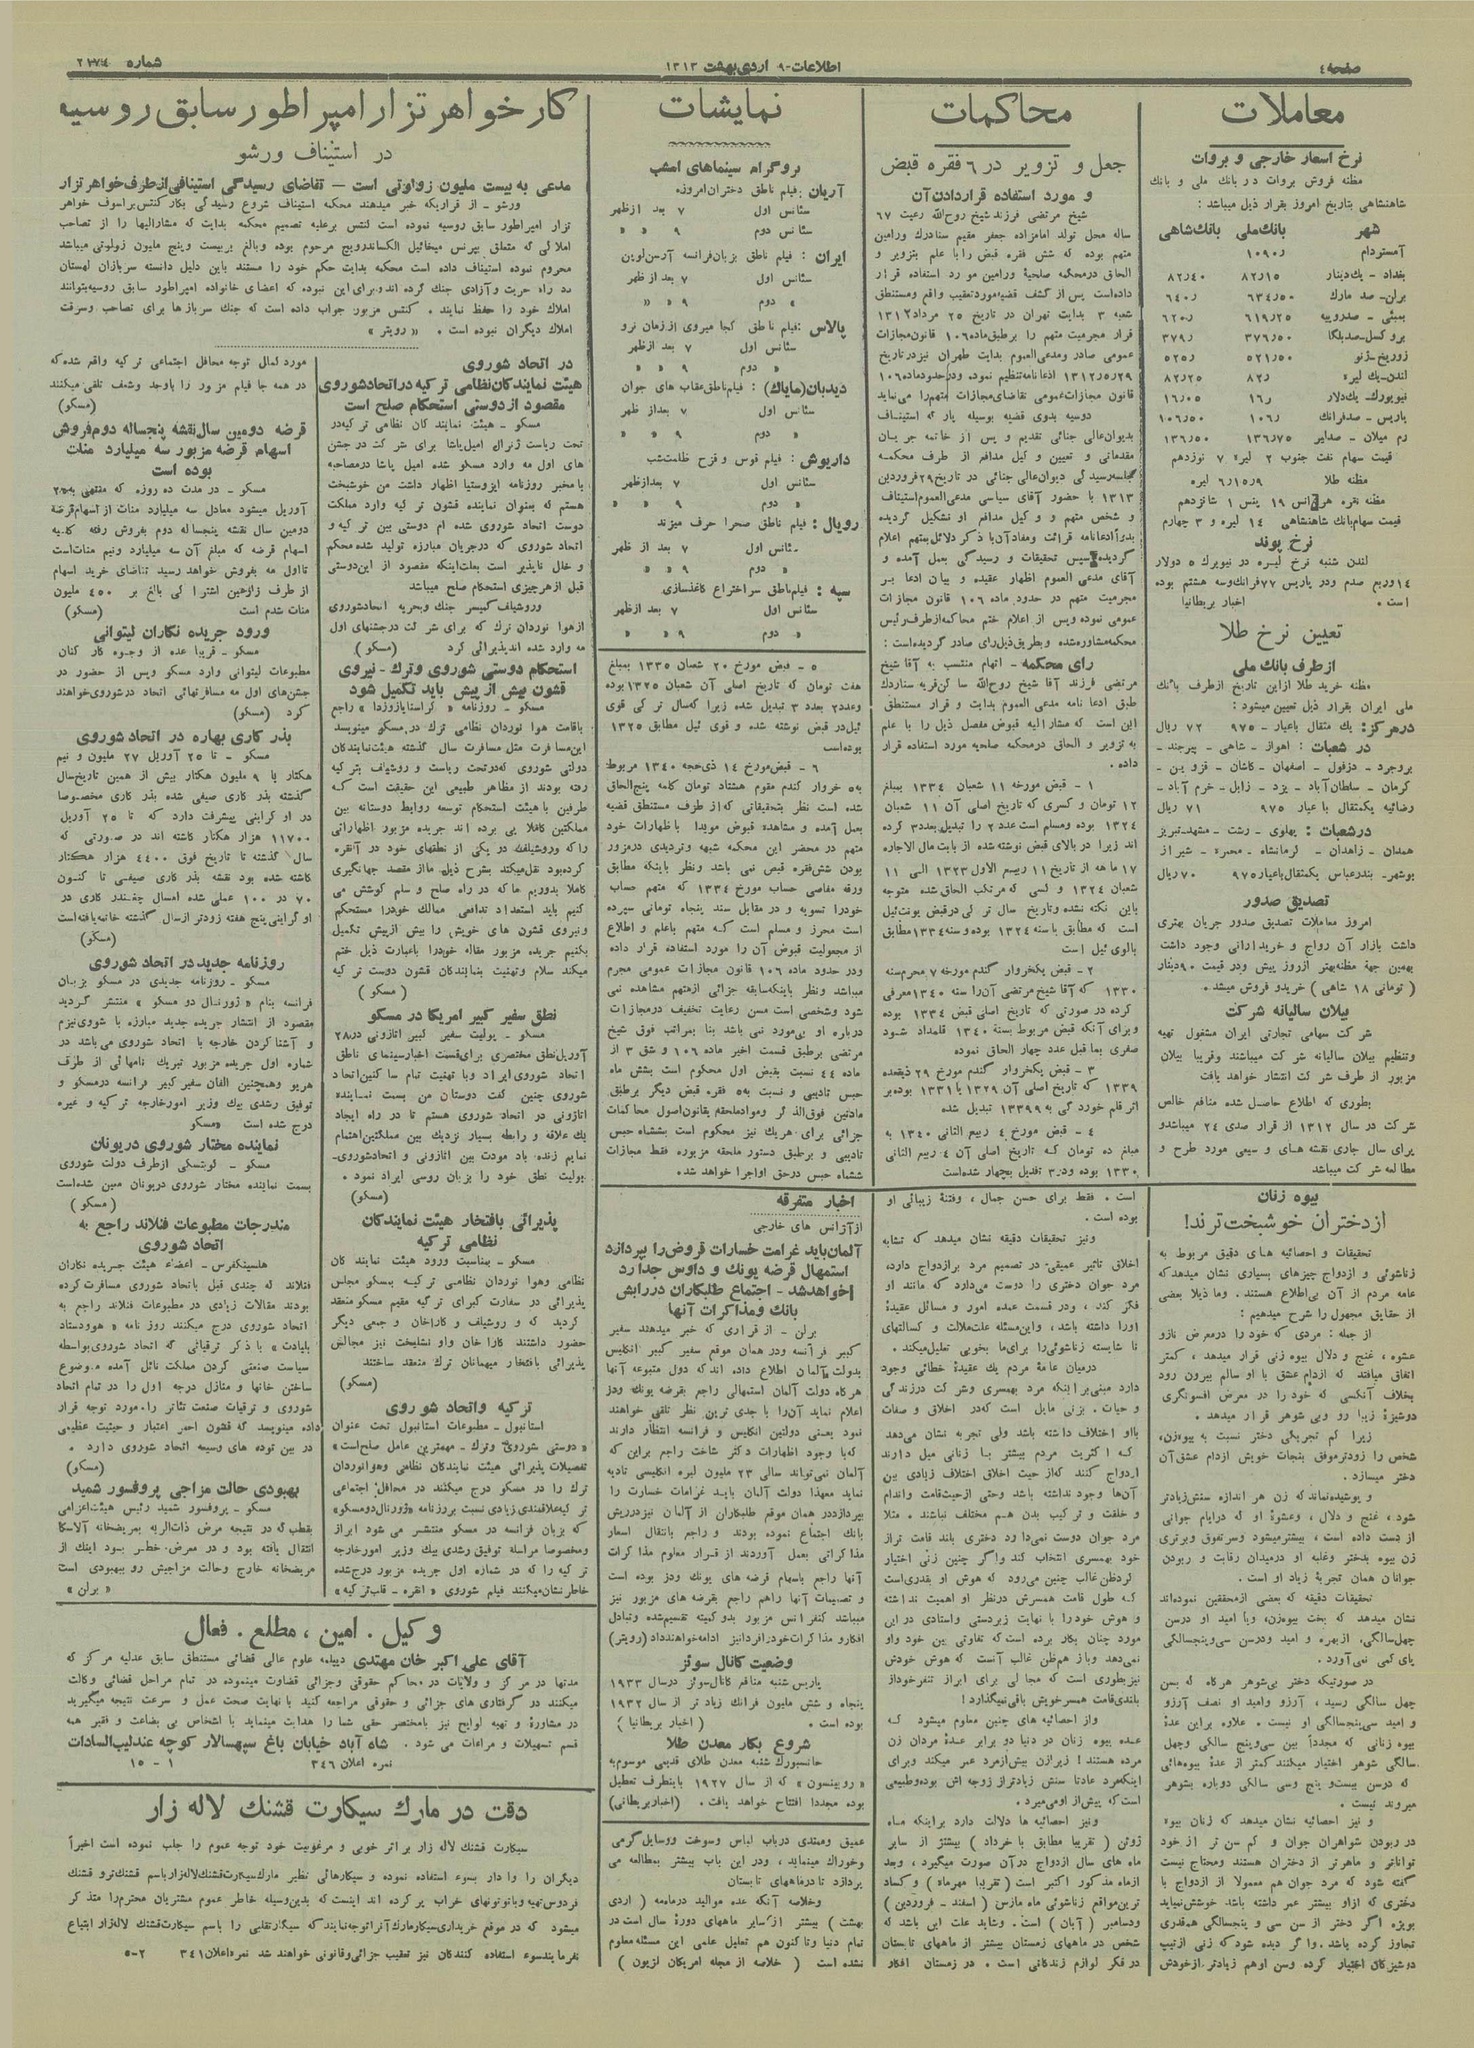 صفحه ٤
اطلاعات - ٩ اردی‌بهشت ١٣١٣
شماره ٢١٧٤
معاملات
نرخ اسعار خارجی و بروات
مظنه فروش بروات در بانک ملی و بانک
شاهنشاهی بتاریخ امروز بقرار ذیل میباشد :
شهر بانک‌ملی بانک‌شاهی
آمستردام
بغداد - یک‌دینار ٨٢/١٥ ٨٢/٤٠
برلن - صد مارک ٦٣٤/٥٠ ٦٤٠/
بمبئی - صدروپیه ٦١٩/٢٥ ٦٢٠/
بروکسل - صدبلگا ٣٧٦/٥٠ ٣٧٩/
زوریخ - ژنو ٥٢١/٥٠ ٥٢٥/
لندن - یک لیره ٨٢/ ٨٢/٢٥
نیویورک - یک‌دلار ١٦/ ١٦/٠٥
پاریس - صدفرانک ١٠٦/ ١٠٦/٥٠
رم میلان - صدلیر ١٣٦/٧٥ ١٣٦/٥٠
قیمت سهام نفت جنوب ٢ لیره ٧ نوزدهم
مظنه طلا ٦/١٥/٩ لیره
قیمت سهام بانک شاهنشاهی ١٤ لیره و ٣ چهارم
نرخ پوند
لندن شنبه نرخ لیره در نیویرک ٥ دولار
١٤ وربع صدم ودر پاریس ٧٧ فرانک وسه هشتم بوده
است . اخبار بریطانیا
تعیین نرخ طلا
از طرف بانک ملی
مظنه خرید طلا ازاین تاریخ از طرف بانک
ملی ایران بقرار ذیل تعیین میشود :
درمرکز: یک مثقال بعیار ٩٧٥ - ٧٢ ریال
در شعبات : اهواز - شاهی - بیرجند -
بروجرد - دزفول - اصفهان - کاشان - قزوین -
کرمان - سلطان آباد - یزد - زابل - خرم آباد -
رضائیه یکمثقال با عیار ٩٧٥ ٧١ ریال
درشعبات : پهلوی - رشت - مشهد - تبریز
همدان - زاهدان - کرمانشاه - محمره - شیراز
بوشهر - بندرعباس یکمثقال باعیار ٩٧٥ ٧٠ ریال
تصدیق صدور
امروز معاملات تصدیق صدور جریان بهتری
داشت بازار آن رواج و خریدارانی وجود داشت
بهمین جهة مظنه بهتر ازروز پیش ودر قیمت ٩٠ دینار
( تومانی ١٨ شاهی ) خرید و فروش میشد .
بیلان سالیانه شرکت
شرکت سهامی تجارتی ایران مشغول تهیه
وتنظیم بیلان سالیانه شرکت میباشند وقریبا بیلان
مزبور از طرف شرکت انتشار خواهد یافت
بطوری که اطلاع حاصل شده منافع خالص
شرکت در سال ١٣١٢ از قرار صدی ٢٤ میباشد و
برای سال جاری نقشه های و سیعی مورد طرح و
مطالعه شرکت میباشد
محاکمات
جعل و تزویر در ٦ فقره قبض
و مورد استفاده قراردادن آن
شیخ مرتضی فرزند شیخ روح‌الله رعیت ٦٧
ساله محل تولد امامزاده جعفر مقیم سنادرک ورامین
متهم بوده که شش فقره قبض را با علم بتزویر و
الحاق درمحکمه صلحیهٔ ورامین مورد استفاده قرار
داده است پس از کشف قضیه مورد تعقیب واقع ومستنطق
شعبه ٣ بدایت تهران در تاریخ ٢٥ مرداد ١٣١٢
قرار مجرمیت متهم را برطبق ماده ١٠٦ قانون مجازات
عمومی صادر ومدعی‌العموم بدایت طهران نیز در تاریخ
١٣١٢/٥/٢٩ ادعا نامه تنظیم نمود، ودر حدود ماده ١٠٦
قانون مجازات عمومی تقاضای مجازات متهم را مینماید
دوسیه بدوی قضیه بوسیله پارکه استیناف
بدیوان عالی جنائی تقدیم و پس از خاتمه جریان
مقدماتی و تعیین و کیل مدافع از طرف محکمه
١٣١٣ با حضور آقای سیاسی مدعی‌العموم استیناف
و شخص متهم و وکیل مدافع او تشکیل گردیده
بدوا ادعانامه قرائت ومفاد آن با ذکر دلائل بمتهم اعلام
گردیده سپس تحقیقات و رسیدگی بعمل آمده و
آقای مدعی العموم اظهار عقیده و بیان ادعا بر
مجرمیت متهم در حدود ماده ١٠٦ قانون مجازات
عمومی نموده وپس از اعلام ختم محاکمه از طرف رئیس
محکمه مشاوره شده وبطریق ذیل رای صادر گردیده است:
رأی محکمه - اتهام منتسب به آقا شیخ
مرتضی فرزند آقا شیخ روح‌الله ساکن قریه سنادرک
طبق ادعا نامه مدعی العموم بدایت و قرار مستنطق
این است که مشار الیه قبوض مفصل ذیل را با علم
به تزویر و الحاق درمحکمه صلحیه مورد استفاده قرار
داده .
١ - قبض مورخه ١١ شعبان ١٣٣٤ بمبلغ
١٢ تومان و کسری که تاریخ اصلی آن ١١ شعبان
١٣٢٤ بوده ومسلم است عدد ٢ را تبدیل بعدد ٣ کرده
اند زیرا در بالای قبض نوشته شده از بابت مال الاجاره
١٧ ماهه از تاریخ ١١ ربیع الاول ١٣٢٣ الی ١١
شعبان ١٣٢٤ و کسی که مرتکب الحاق شده متوجه
باین نکته نشده وتاریخ سال ترکی درقبض یونت‌ئیل
است که مطابق با سنه ١٣٢٤ بوده وسنه ١٣٣٤ مطابق
بالوی ئیل است
٢ - قبض یکخروار گندم مورخه ٧ محرم سنه
١٣٣٠ که آقا شیخ مرتضی آن را سنه ١٣٤٠ معرفی
کرده در صورتی که تاریخ اصلی قبض ١٣٣٤ بوده
وبرای آنکه قبض مربوط بسنه ١٣٤٠ قلمداد شود
صفری بماقبل عدد چهار الحاق نموده
٣ - قبض یکخروار گندم مورخ ٢٩ ذیقعده
١٣٣٩ که تاریخ اصلی آن ١٣٢٩ یا ١٣٣١ بوده بر
اثر قلم خوردگی به ١٣٣٩٩ تبدیل شده
٤ - قبض مورخ ٤ ربیع الثانی ١٣٤٠ به
مبلغ ده تومان که تاریخ اصلی آن ٤ ربیع الثانی
١٣٣٠ بوده ودر ٣ تقدیل بچهار شده است
نمایشات
پروگرام سینماهای امشب
آریان: فیلم ناطق دختران امروزه
سئانس اول ٧ بعد ازظهر
سئانس دوم ٩ « «
ایران : فیلم ناطق بزبان فرانسه آرسن لوپن
سئانس اول ٧ بعد از ظهر
« دوم ٩ « «
پالاس : فیلم ناطق کجا میروی اززمان نرو
سئانس اول ٧ بعد ازظهر
« دوم ٩ « «
دیدبان(مایاک) : فیلم ناطق عقاب های جوان
سئانس اول ٧ بعد از ظهر
« دوم ٩ « «
داریوش : فیلم قوس و قزح ظلمت شب
سئانس اول ٧ بعد ازظهر
سئانس دوم ٩ « «
رویال : فیلم ناطق صحرا حرف میزند
سئانس اول ٧ بعد از ظهر
« دوم ٩ « «
سپه : فیلم ناطق سر اختراع کاغذسازی
سئانس اول ٧ بعد ازظهر
« دوم ٩ « «
٥ - قبض مورخ ٢٠ شعبان ١٣٣٥ بمبلغ
هفت تومان که تاریخ اصلی آن شعبان ١٣٢٥ بوده
وعدد ٢ بعدد ٣ تبدیل شده زیرا که سال ترکی قوی
ئیل در قبض نوشته شده و قوی ئیل مطابق ١٣٢٥
بوده است
٦ - قبض مورخ ١٤ ذی‌حجه ١٣٤٠ مربوط
به ٥ خروار گندم مقوم هشتاد تومان کلمه پنج الحاق
شده است نظر بتحقیقاتی که از طرف مستنطق قضیه
بعمل آمده و مشاهده قبوض مویدا باظهارات خود
متهم در محضر این محکمه شبهه وتردیدی در مزور
بودن شش فقره قبض نمی باشد ونظر باینکه مطابق
ورقه مفاصی حساب مورخ ١٣٣٤ که متهم حساب
خودرا تسویه و در مقابل سند پنجاه تومانی سپرده
است محرز و مسلم است که متهم باعلم و اطلاع
از مجعولیت قبوض آن را مورد استفاده قرار داده
ودر حدود ماده ١٠٦ قانون مجازات عمومی مجرم
میباشد ونظر باینکه سابقه جزائی از متهم مشاهده نمی
شود وشخصی است مسن رعایت تخفیف درمجازات
درباره او بی‌مورد نمی باشد بنا بمراتب فوق شیخ
مرتضی برطبق قسمت اخیر ماده ١٠٦ و شق ٣ از
ماده ٤٤ نسبت بقبض اول محکوم است بشش ماه
حبس تادیبی و نسبت به ٥ فقره قبض دیگر برطبق
مادتین فوق‌الذکر ومواد ملحقه بقانون اصول محاکمات
جزائی برای هریک نیز محکوم است بششماه حبس
تادیبی و برطبق دستور ملحقه مزبوره فقط مجازات
ششماه حبس درحق اواجرا خواهد شد.
کار خواهر تزار امپراطور سابق روسیه
در استیناف ورشو
مدعی به بیست ملیون زولوتی است - تقاضای رسیدگی استینافی از طرف خواهر تزار
ورشو - از قراریکه خبر میدهند محکمه استیناف شروع رسیدگی بکار کنتس براسوف خواهر
تزار امپراطور سابق روسیه نموده است کنتس برعلیه تصمیم محکمه بدایت که مشارالیها را از تصاحب
املاکی که متعلق بپرنس میخائیل الکساندرویچ مرحوم بوده وبالغ بربیست وپنج ملیون زولوتی میباشد
محروم نموده استیناف داده است محکمه بدایت حکم خود را مستند باین دلیل دانسته سربازان لهستان
در راه حریت و آزادی جنگ کرده اند وبرای این نبوده که اعضای خانواده امپراطور سابق روسیه بتوانند
املاک خود را حفظ نمایند . کنتس مزبور جواب داده است که جنگ سربازها برای تصاحب وسرقت
املاک دیگران نبوده است . « رویتر »
در اتحاد شوروی
هیئت نمایندگان نظامی ترکیه در اتحاد شوروی
مقصود ازدوستی استحکام صلح است
مسکو - هیئت نمایندگان نظامی ترکیه در
تحت ریاست ژنرال امیل‌پاشا برای شرکت در جشن
های اول مه وارد مسکو شده امیل پاشا در مصاحبه
با مخبر روزنامه ایزوستیا اظهار داشت من خوشبخت
هستم که بعنوان نماینده قشون ترکیه وارد مملکت
دوست اتحاد شوروی شده ام دوستی بین ترکیه و
اتحاد شوروی که درجریان مبارزه تولید شده محکم
و خلل ناپذیر است بعلت اینکه مقصود از این دوستی
قبل ازهر چیزی استحکام صلح میباشد
وروشیلف کمیسر جنگ وبحریه اتحاد شوروی
ازهوا نوردان ترک که برای شرکت درجشنهای اول
مه وارد شده اند پذیرائی کرد (مسکو)
استحکام دوستی شوروی وترک - نیروی
قشون بیش از پیش باید تکمیل شود
مسکو - روزنامه « کراسنایازوزدا » راجع
باقامت هوا نوردان نظامی ترک در مسکو مینویسد
این مسافرت مثل مسافرت سال گذشته هیئت نمایندگان
دولتی شوروی که در تحت ریاست وروشیلف بترکیه
رفته بودند از مظاهر طبیعی این حقیقت است که
طرفین با هیئت استحکام توسعه روابط دوستانه بین
مملکتین کاملا پی برده اند جریده مزبور اظهاراتی
را که وروشیلف در یکی از نطقهای خود در آنقره
کرده بود نقل میکند بشرح ذیل ماازمقصد جهانگیری
کاملا بدوریم ما که در راه صلح و سلم کوشش می
کنیم باید استعداد تدافعی ممالک خودرا مستحکم
ونیروی قشون های خویش را بیش از پیش تکمیل
بکنیم جریده مزبور مقاله خودرا باعبارت ذیل ختم
میکند سلام وتهنیت بنمایندگان قشون دوست ترکیه
( مسکو )
نطق سفیر کبیر امریکا در مسکو
مسکو - بولیت سفیر کبیر اتازونی در ٢٨
آوریل نطق مختصری برای قسمت اخبار سینمای ناطق
اتحاد شوروی ایراد وبا تهنیت تمام ساکنین اتحاد
شوروی چنین گفت دوستان من بسمت نماینده
اتازونی در اتحاد شوروی هستم تا در راه ایجاد
یک علاقه و رابطه بسیار نزدیک بین مملکتین اهتمام
نمایم زنده باد مودت بین اتازونی و اتحاد شوروی -
بولیت نطق خود را بزبان روسی ایراد نمود .
(مسکو)
پذیرائی بافتخار هیئت نمایندگان
نظامی ترکیه
مسکو - بمناسبت ورود هیئت نمایندگان
نظامی وهوا نوردان نظامی ترکیه بمسکو مجلس
پذیرائی در سفارت کبرای ترکیه مقیم مسکو منعقد
گردید که و روشیلف و کاراخان و جمعی دیگر
حضور داشتند کارا خان واو نشلیخت نیز مجالس
پذیرائی بافتخار میهمانان ترک منعقد ساختند
(مسکو)
ترکیه واتحاد شوروی
استانبول - مطبوعات استانبول تحت عنوان
« دوستی شوروی وترک - مهمترین عامل صلح است»
تفصیلات پذیرائی هیئت نمایندگان نظامی وهوانوردان
ترک را در مسکو درج میکنند در محافل اجتماعی
ترکیه علاقمندی زیادی نسبت بروزنامه «ژورنال دومسکو»
که بزبان فرانسه در مسکو منتشر می شود ابراز
ومخصوصا مراسله توفیق رشدی بیک وزیر امورخارجه
ترکیه را که در شماره اول جریده مزبور درج شده
خاطر نشان میکنند فیلم شوروی « انقره - قلب ترکیه »
مورد کمال توجه محافل اجتماعی ترکیه واقع شده که
در همه جا فیلم مزبور را باوجد وشعف تلقی میکنند
(مسکو)
قرضه دومین سال نقشه پنجساله دوم فروش
اسهام قرضه مزبور سه میلیارد منات
بوده است
مسکو - در مدت ده روزه که منتهی به ٢٨
آوریل میشود معادل سه میلیارد منات از اسهام قرضهٔ
دومین سال نقشه پنجساله دوم بفروش رفته کلیه
اسهام قرضه که مبلغ آن سه میلیارد ونیم منات است
تا اول مه بفروش خواهد رسید تقاضای خرید اسهام
از طرف زارعین اشتراکی بالغ بر ٤٥٠ ملیون
منات شده است (مسکو)
ورود جریده نگاران لیتوانی
مسکو - قریبا عده از وجوه کارکنان
مطبوعات لیتوانی وارد مسکو وپس از حضور در
جشن‌های اول مه مسافرتهائی اتحاد شوروی خواهند
کرد (مسکو)
بذر کاری بهاره در اتحاد شوروی
مسکو - تا ٢٥ آوریل ٢٧ ملیون و نیم
هکتار یا ٩ ملیون هکتار بیش از همین تاریخ سال
گذشته بذر کاری صیفی شده بذر کاری مخصوصا
در اوکراینی پیشرفت دارد که تا ٢٥ آوریل
١١٧٠٠ هزار هکتار کاشته اند در صورتی که
سال گذشته تا تاریخ فوق ٤٤٠٠ هزار هکتار
کاشته شده بود نقشه بذر کاری صیفی تا کنون
٧٠ در ١٠٠ عملی شده امسال چغندر کاری در
اوکراینی پنج هفته زودتر ازسال گذشته خاتمه یافته است
(مسکو)
روزنامه جدید در اتحاد شوروی
مسکو - روزنامه جدیدی در مسکو بزبان
فرانسه بنام « ژورنال دو مسکو » منتشر گردید
مقصود از انتشار جریده جدید مبارزه با شووی‌نیزم
و آشنا کردن خارجه با اتحاد شوروی می باشد در
شماره اول جریده مزبور تبریک نامهائی از طرف
هریو وهمچنین آلفان سفیر کبیر فرانسه درمسکو و
توفیق رشدی بیک وزیر امورخارجه ترکیه و غیره
درج شده است «مسکو
نماینده مختار شوروی در یونان
مسکو - لوبتسکی ازطرف دولت شوروی
بسمت نماینده مختار شوروی دریونان معین شده است
( مسکو )
مندرجات مطبوعات فنلاند راجع به
اتحاد شوروی
هلسینکفرس - اعضاء هیئت جریده نگاران
فنلاند که چندی قبل باتحاد شوروی مسافرت کرده
بودند مقالات زیادی در مطبوعات فنلاند راجع به
اتحاد شوروی درج میکنند روزنامه « هوودستاد
بلیادت » با ذکر ترقیاتی که اتحاد شوروی بواسطه
سیاست صنعتی کردن مملکت نائل آمده و موضوع
ساختن خانها و منازل درجه اول را در تمام اتحاد
شوروی و ترقیات صنعت تئاتر را، مورد توجه قرار
داده مینویسد که قشون احمر اعتبار و حیثیت عظیمی
در بین توده های وسیعه اتحاد شوروی دارد .
(مسکو)
بهبودی حالت مزاجی پروفسور شمید
مسکو - پروفسور شمید رئیس هیئت اعزامی
بقطب که در نتیجه مرض ذات‌الریه بمریضخانه آلاسکا
انتقال یافته بود و در معرض خطر بود اینک از
مریضخانه خارج وحالت مزاجیش رو ببهبودی است
« برلن »
وکیل . امین ، مطلع . فعال
آقای علی اکبر خان مهتدی دیپلمه علوم عالی قضائی مستنطق سابق عدلیه مرکز که
مدتها در مرکز و ولایات در محاکم حقوقی وجزائی قضاوت مینموده در تمام مراحل قضائی وکالت
میکنند در گرفتاری های جزائی و حقوقی مراجعه کنید با نهایت صحت عمل و سرعت نتیجه میگیرید
در مشاوره و تهیه لوایح نیز بامختصر حقی شما را هدایت مینماید با اشخاص بی بضاعت و فقیر همه
قسم تسهیلات و مراعات می شود . شاه آباد خیابان باغ سپهسالار کوچه عندلیب السادات
نمره اعلان ٣٤٦ ١ - ١٥
دقت در مارک سیگارت قشنگ لاله زار
سیگارت قشنگ لاله زار براثر خوبی و مرغوبیت خود توجه عموم را جلب نموده است اخیراً
دیگران را وادار بسوء استفاده نموده و سیگارهائی نظیر مارک سیگارت قشنگ لاله‌زار باسم قشنگ نو و قشنگ
فردوس تهیه وباتوتونهای خراب پر کرده اند اینست که بدین وسیله خاطر عموم مشتریان محترم را متذکر
میشود که در موقع خریداری سیگار مارک آنرا توجه نمایند که سیگار تقلبی را باسم سیگارت قشنگ لاله‌زار ابتیاع
نفرمایند سوء استفاده کنندگان نیز تعقیب جزائی وقانونی خواهند شد نمره اعلان ٣٤١ ٢-٥
بیوه زنان
از دختران خوشبخت ترند!
تحقیقات و احصائیه های دقیق مربوط به
زناشوئی و ازدواج چیزهای بسیاری نشان میدهد که
عامه مردم از آن بی‌اطلاع هستند . وما ذیلا بعضی
از حقایق مجهول را شرح میدهیم :
از جمله : مردی که خود را درمعرض نازو
عشوه ، غنج و دلال بیوه زنی قرار میدهد ، کمتر
اتفاق میافتد که ازدام عشق با او سالم بیرون رود
بخلاف آنکسی که خود را در معرض افسونگری
دوشیزهٔ زیبا رو وبی شوهر قرار میدهد .
زیرا کم تجربکی دختر نسبت به بیوه‌زن،
شخص را زودتر موفق بنجات خویش ازدام عشق آن
دختر میسازد .
و پوشیده نماند که زن هر اندازه سنش زیادتر
شود ، غنج و دلال ، وعشوهٔ او که درایام جوانی
از دست داده است ، بیشتر میشود وسرتفوق وبرتری
زن بیوه بدختر وغلبه او درمیدان رقابت و ربودن
جوانان همان تجربهٔ زیاد او است .
تحقیقات دقیقه که بعضی ازمحققین نموده‌اند
نشان میدهد که بخت بیوه‌زن، ویا امید او درسن
چهل‌سالگی، ازبهره و امید ودرسن سی‌وپنجسالگی
پای کمی نمی‌آورد .
در صورتیکه دختر بی‌شوهر هرگاه که بسن
چهل سالگی رسید ، آرزو وامید او نصف آرزو
و امید سی پنجسالگی او نیست . علاوه براین عدهٔ
بیوه زنانی که مجدداً بین سی‌وپنج سالکی وچهل
سالگی شوهر اختیار میکنند کمتر از عدهٔ بیوه‌هائی
که درسن بیست‌و پنج وسی سالکی دوباره بشوهر
میروند نیست .
و نیز احصائیه نشان میدهد که زنان بیوه
در ربودن شوهران جوان و کم سن تر از خود
تواناتر و ماهرتر از دختران هستند ومحتاج نیست
گفته شود که مرد جوان هم معمولا از ازدواج با
دختری که ازاو بیشتر عمر داشته باشد خوشش نمیاید
بویژه اگر دختر از سن سی و پنجسالگی هم قدری
تجاوز کرده باشد . واگر دیده شود که زنی ازتیپ
دوشیزگان اختیار کرده وسن اوهم زیادتر ازخودش
است . فقط برای حسن جمال ، وفتنهٔ زیبائی او
بوده است .
ونیز تحقیقات دقیقه نشان میدهد که تشابه
اخلاق تاثیر عمیقی در تصمیم مرد برازدواج دارد،
مرد جوان دختری را دوست میدارد که مانند او
فکر کند ، ودر قسمت عمده امور و مسائل عقیدهٔ
اورا داشته باشد، واین مسئله علت ملالت و کسالتهای
نا شایسته زناشوئی را برای ما بخوبی تعلیل میکند .
درمیان عامهٔ مردم یک عقیدهٔ خطائی وجود
دارد مبنی بر اینکه مرد بهمسری وشرکت درزندگی
و حیات . بزنی مایل است که در اخلاق و صفات
بااو اختلاف داشته باشد ولی تجربه نشان می‌دهد
که اکثریت مردم بیشتر با زنانی میل دارند
ازدواج کنند که از حیث اخلاق اختلاف زیادی بین
آن‌ها وجود نداشته باشد وحتی ازحیث قامت واندام
و خلقت و ترکیب بدن هم مختلف نباشند . مثلا
مرد جوان دوست نمی‌دارد دختری بلند قامت تر از
خود بهمسری انتخاب کند واگر چنین زنی اختیار
کرد ظن غالب چنین می‌رود که هوش او بقدری است
که طول قامت همسرش درنظر او اهمیت نداشته
و هوش خود را با نهایت زبردستی واستادی در این
مورد چنان بکار برده است که تفاوتی بین خود واو
نمی‌دهد وباز هم ظن غالب آنست که هوش خودش
نیز بطوری است که مجالی برای ابراز تنفر خود از
بلندی قامت همسر خویش باقی نمیگذارد !
واز احصائیه های چنین معلوم میشود که
عده بیوه زنان در دنیا دو برابر عدهٔ مردان زن
مرده هستند ! زیرا زن بیش از مرد عمر میکند وبرای
اینکه مرد عادتا سنش زیادتر از زوجه اش بوده وطبیعی
است که پیش از او میمیرد .
ونیز احصائیه ها دلالت دارد براینکه ماه
ژوئن ( تقریبا مطابق با خرداد ) بیشتر از سایر
ماه های سال ازدواج درآن صورت میگیرد ، وبعد
ازماه مذکور اکتبر است ( تقریبا مهرماه ) و کساد
ترین مواقع زناشوئی ماه مارس ( اسفند - فروردین )
ودسامبر ( آبان ) است . وشاید علت این باشد که
شخص در ماههای زمستان بیشتر از ماههای تابستان
در فکر لوازم زندگانی است . در زمستان افکار
اخبار متفرقه
ازآژانس های خارجی
آلمان باید غرامت خسارات قروض را بپردازد
استمهال قرضه یونک و داوس جدا رد
خواهد شد - اجتماع طلبکاران در رایش
بانک ومذاکرات آنها
برلن - از قراری که خبر میدهند سفیر
کبیر فرانسه ودر همان موقع سفیر کبیر انگلیس
بدولت آلمان اطلاع داده اند که دول متبوعه آنها
هرگاه دولت آلمان استمهالی راجع بقرضه یونک ودز
اعلام نماید آن را با جدی ترین نظر تلقی خواهند
نمود یعنی دولتین انگلیس و فرانسه انتظار دارند
که با وجود اظهارات دکتر شاخت راجع براین که
آلمان نمی‌تواند سالی ٢٣ ملیون لیره انگلیسی تادیه
نماید معهذا دولت آلمان باید غرامات خسارت را
بپردازد در همان موقع طلبکاران از آلمان نیز در ریش
بانک اجتماع نموده بودند و راجع بانتقال اسعار
مذاکراتی بعمل آوردند از قرار معلوم مذاکرات
آنها راجع باسهام قرضه های یونک ودز بوده است
و تصمیمات آنها راهم راجع بقرضه های مزبور نیز
میباشد کنفرانس مزبور بدو کمیته تقسیم شده وتبادل
افکار و مذاکرات خود را فردا نیز ادامه خواهند داد (رویتر)
وضعیت کانال سوئز
پاریس شنبه منافع کانال سوئز درسال ١٩٣٣
پنجاه و شش ملیون فرانک زیادتر از سال ١٩٣٢
بوده است . ( اخبار بریطانیا )
شروع بکار معدن طلا
جانسبورک شنبه معدن طلای قدیمی موسوم به
« روبینسون » که از سال ١٩٢٧ باینطرف تعطیل
بوده مجددا افتتاح خواهد یافت . (اخبار بریطانی)
عمیق وممتدی درباب لباس وسوخت ووسایل گرمی
وخوراک مینماید ، ودر این باب بیشتر بمطالعه می
پردازد تا درماههای تابستان
وخلاصه آنکه عده موالید درماهمه ( اردی
بهشت ) بیشتر از سایر ماههای دورهٔ سال است در
تمام دنیا وتاکنون هم تعلیل علمی این مسئله معلوم
نشده است ( خلاصه از مجله امریکان لژیون )